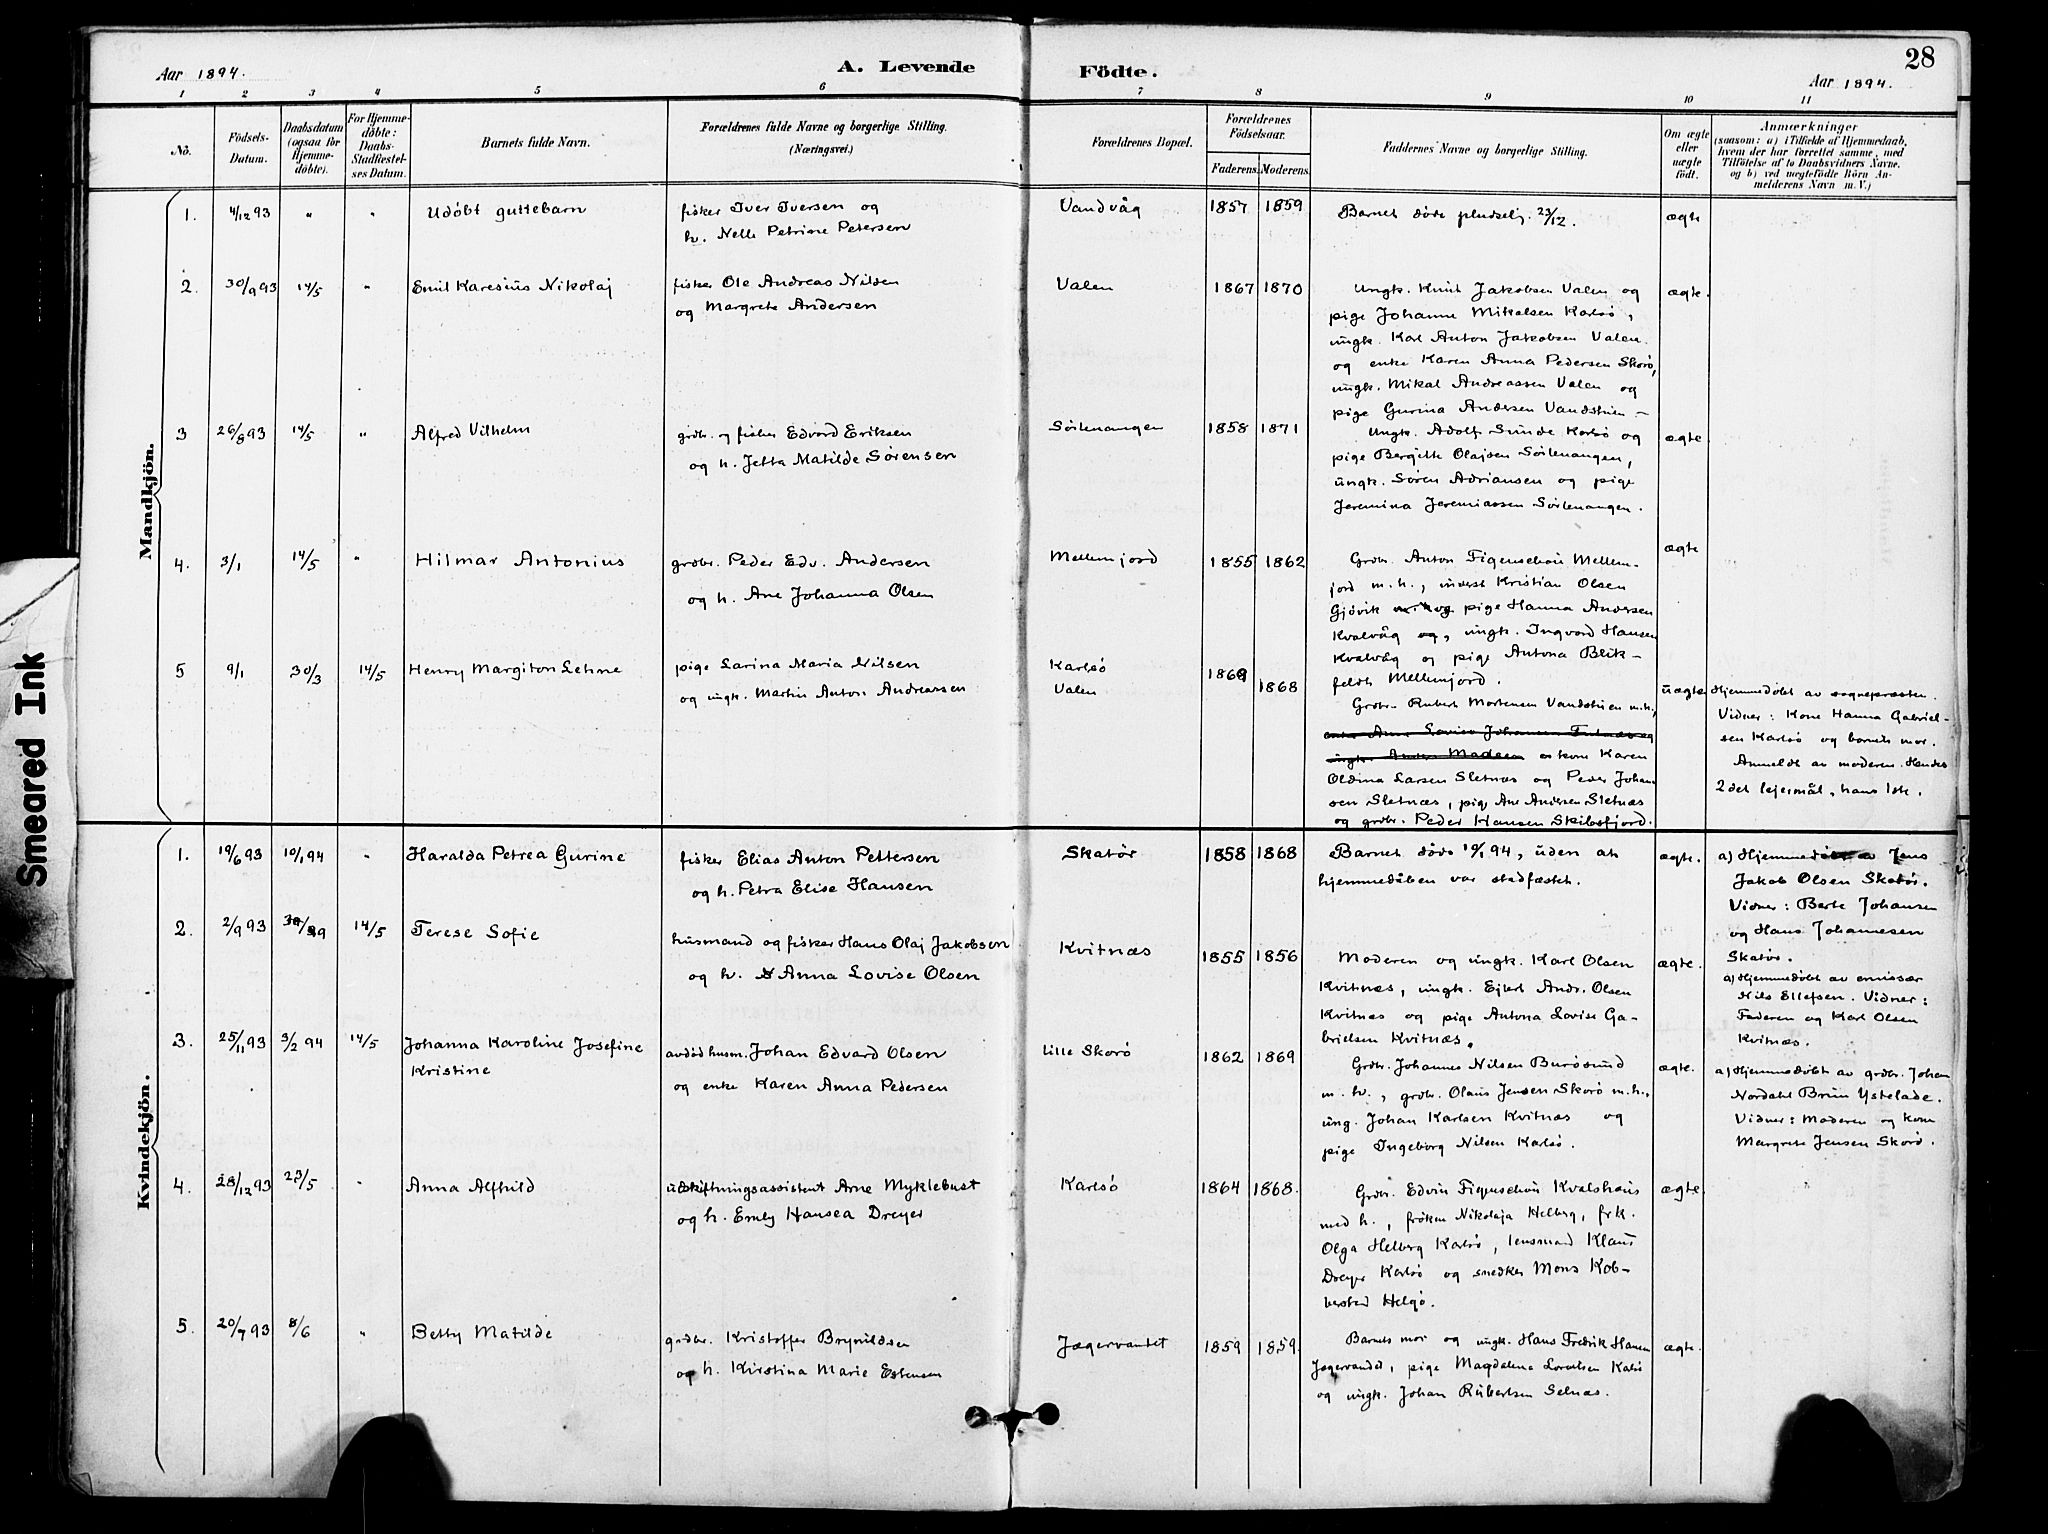 28
Aar 1894.
A. Levende Födte.
Aar 1894.
1 2 3 4 5 6 7 8 9 10 11
No.
Födsels-Datum.
Daabsdatum (ogsaa for Hjemmedøbte).
For Hjemmedøbte: Daabs-Stadfæstelses Datum.
Barnets fulde Navn.
Forældrenes fulde Navne og borgerlige Stilling.
(Næringsvei.)
Forældrenes Bopæl.
Forældrenes Födselsaar.
Faderens. Moderens.
Faddernes Navne og borgerlige Stilling.
Om ægte eller uægte födt.
Anmærkninger
(saasom: a) i Tilfælde af Hjemmedaab, hvem der har forrettet samme, med Tilföielse af to Daabsvidners Navne, og b) ved uægtefödte Börn Anmelderens Navn m. V.)
Smeared Ink
Mandkjön.
1. 4/12 93 " " Udöbt guttebarn
fisker Iver Iversen og
h. Nelle Petrine Petersen
Vandvåg 1857 1859
Barnet döde pludselig 23/12.
ægte
2. 30/9 93 14/5 " Emil Karesius Nikolaj
fisker Ole Andreas Nilsen
og Margrete Andersen
Valen 1867 1870
Ungk. Knut Jakobsen Valen og
pige Johanne Mikalsen Karlsö,
ungk. Karl Anton Jakobsen Valen
og enke Karen Anna Pedersen Skorö,
ungk. Mikal Andreassen Valen og
pige Gurina Andersen Vandstuen –
ægte.
3 26/8 93 14/5 " Alfred Vilhelm
grdbr. og fisker Edvard Eriksen
og h. Jetta Matilde Sörensen
Sörlenangen 1858 1871
Ungk. Adolf Sunde Karlsö og
pige Bergitte Olajsen Sörlenangen,
ungk. Sören Adriansen og pige
Jeremina Jeremiassen Sörlenangen.
ægte
4. 3/1 14/5 " Hilmar Antonius
grdbr. Peder Edv. Andersen
og h. Ane Johanna Olsen
Mellemjord 1855 1862
Grdbr. Anton Figenschou Mellem-
jord m.h., inderst Kristian Olsen
Gjövik pige Hanna Andersen
Kvalvåg og, ungk. Ingvard Hansen
Kvalvåg og pige Antona Blik-
feldt Mellemjord.
ægte
5 9/1 30/3 14/5 Henry Margiton Lehne
pige Larina Maria Nilsen
og ungk. Martin Anton Andreassen
Karlsö
Valen
1869 1868
Grdbr. Rubert Mortensen Vandstuen m.h.,
enke Anne Lovise Johansen og
ungk. Anders Madsen kone Karen
Oldina Larsen Sletnæs og Peder Johan
sen Sletnæs, pige Ane Andersen Sletnæs
og grdbr. Peder Hansen Skibsfjord.
uægte
Hjemmedöbt av sognepræsten.
Vidner: Kone Hanna Gabriel-
sen Karlsö og barnets mor.
Anmeldt av moderen. Hendes
2det lejermål, hans 1ste.
Kvindekjön.
1. 19/6 93 10/1 94 " Haralda Petrea Gurine
fisker Elias Anton Pettersen
og h. Petra Elise Hansen
Skatör 1858 1868
Barnet döde 19/1 94, uden at
hjemmedåben var stadfæstet.
ægte.
a) Hjemmedöbt av Jens
Jakob Olsen Skatör.
Vidner: Berte Johansen
og Hans Johannesen
Skatör.
2. 2/9 93 14/5 Terese Sofie
husmand og fisker Hans Olaj Jakobsen
og h. Anna Lovise Olsen
Kvitnæs 1855 1856
Moderen og ungk. Karl Olsen
Kvitnæs, ungk. Ejlert Andr. Olsen
Kvitnæs og pige Antona Lovise Ga-
brielsen Kvitnæs.
ægte.
a) Hjemmedöbt av emissær
Nils Ellefsen. Vidner:
Faderen og Karl Olsen
Kvitnæs.
3. 25/11 93 3/2 94 14/5 Johanna Karoline Josefine
Kristine
avdöd husm. Johan Edvard Olsen
og enke Karen Anna Pedersen
Lille Skorö 1862 1869
Grdbr. Johannes Nilsen Burösund
m. h., grdbr. Olaus Jensen Skorö m.h.,
ung. Johan Karlsen Kvitnæs og
pige Ingeborg Nilsen Karlsö.
ægte.
a) Hjemmedöbt av grdbr. Johan
Nordahl Brun Ystelade.
Vidner: Moderen og kone
Margrete Jensen Skorö.
4. 28/12 93 23/5 " Anna Alfhild
udskiftningsassistent Arne Myklebust
og h. Emly Hansea Dreyer
Karlsö 1864 1868.
Grdbr. Edvin Figenschou Kvalshaus
med h., fröken Nikolaja Helberg, frk.
Olga Helberg Karlsö, lensmand Klaus
Dreyer Karlsö og snedker Mons Kob-
berstad Helgö.
ægte.
5. 20/7 93 8/6 " Betty Matilde
grdbr. Kristoffer Brynildsen
og h. Kirstina Marie Estensen
Jægervantet 1859 1859.
Barnets mor og ungk. Hans Fredrik Hansen
Jægervandet, pige Magdalena Lorentsen Karlsö
og ungk. Johan Rubertsen Selnæs.
ægte.